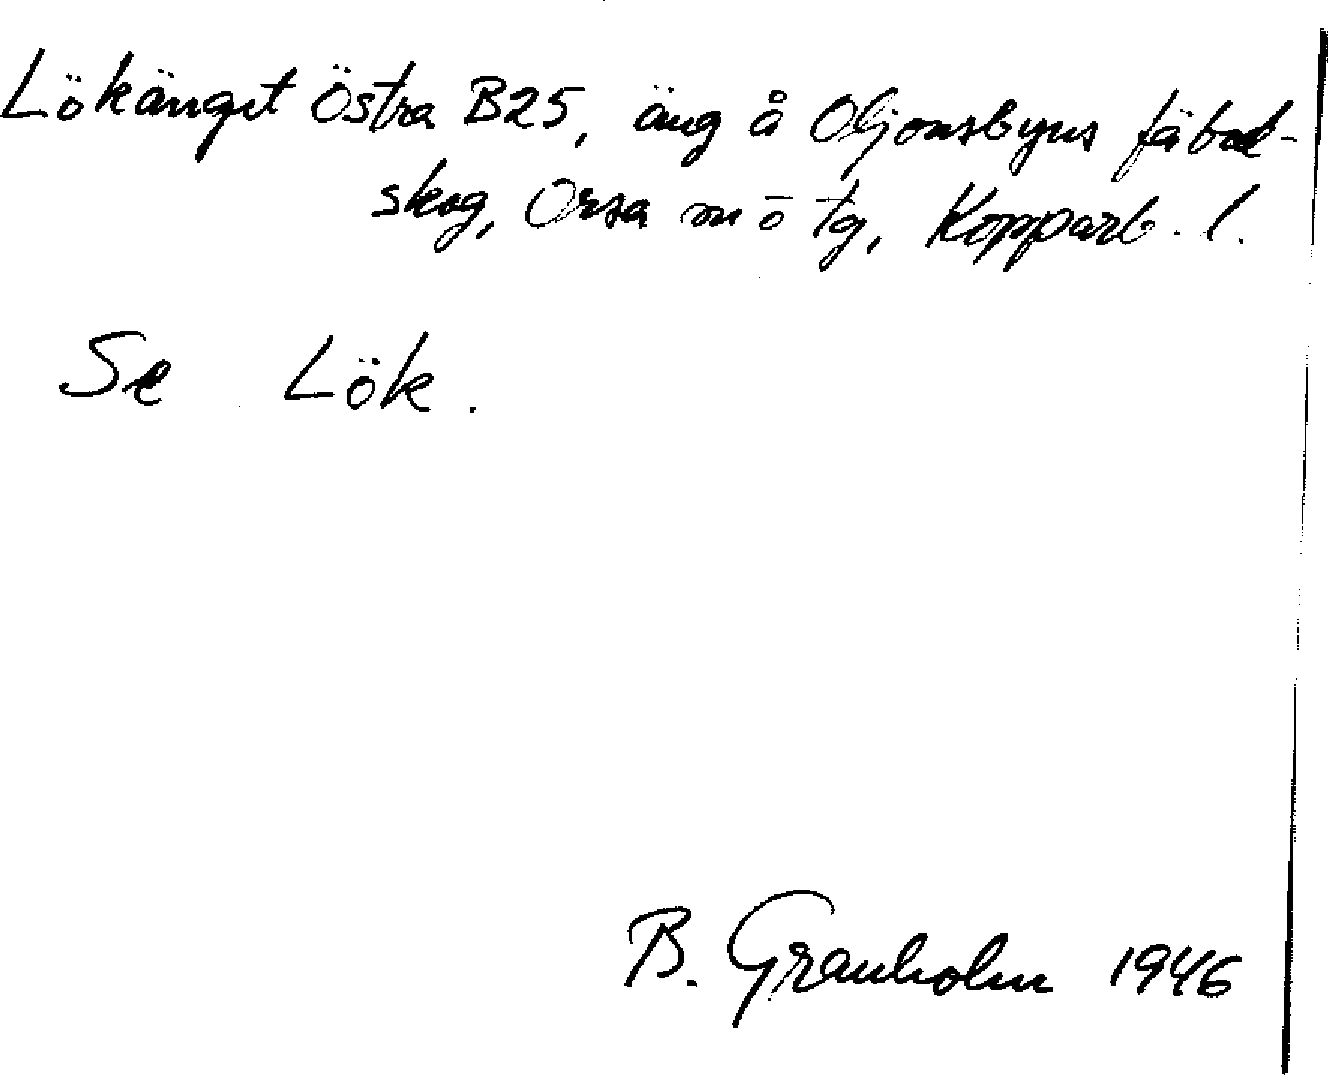 Lökänget Östra B25, äng å Oljonsbyns fäbod-
skog, Orsa sn o tg, Kopparb. l.
Se Lök.
B. Granholm 1946